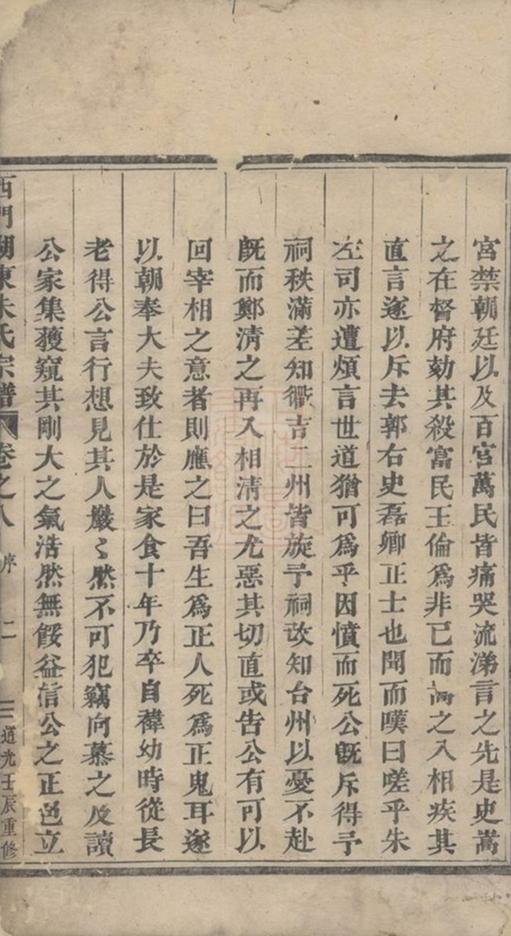 宮禁朝廷以及百官萬民皆痛哭流涕言之先是史嵩
之在督府劾其殺富民王倫為非已而嵩之入相疾其
直言遂以斥去郭右史磊卿正士也聞而嘆曰嗟乎朱
左司亦遭煩言世道猶可為乎因憤而死公既斥得予
祠秩滿差知徽吉二州皆旋予祠改知台州以憂不赴
既而鄭清之再入相清之尤惡其切直或告公有可以
回宰相之意者則應之曰吾生為正人死為正鬼耳遂
以朝奉大夫致仕於是家食十年乃卒自禕幼時從長
老得公言行想見其人嚴〻然不可犯竊向慕之及讀
公家集獲窺其剛大之氣浩然無餒益信公之正色立
西門湖東朱氏宗譜 卷之八 序 二 道光壬辰重修